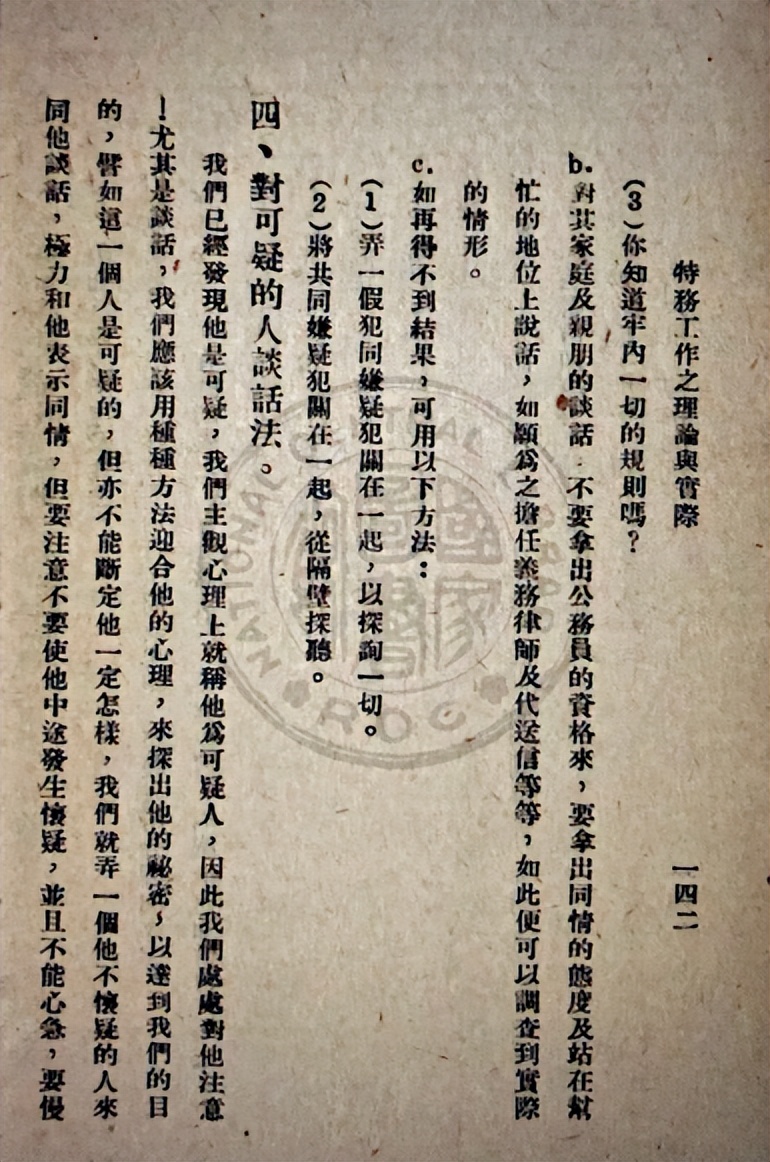 特務工作之理論與實際
一四二
(3)你知道牢內一切的規則嗎？
b.對其家庭及親朋的談話．不要拿出公務員的資格來，要拿出同情的態度及站在幫
忙的地位上說話，如願爲之擔任義務律師及代送信等等，如此便可以調查到實際
的情形。
c.如再得不到結果，可用以下方法：
(1)弄一假犯同嫌疑犯關在一起，以探詢一切。
(2)將共同嫌疑犯關在一起，從隔壁探聽。
四、對可疑的人談話法。
我們已經發現他是可疑，我們主觀心理上就稱他爲可疑人，因此我們處處對他注意
！尤其是談話，我們應該用種種方法迎合他的心理，來探出他的祕密，以達到我們的目
的，譬如這一個人是可疑的，但亦不能斷定他一定怎樣，我們就弄一個他不懷疑的人來
同他談話，極力和他表示同情，但要注意不要使他中途發生懷疑，並且不能心急，要慢
NATIONAL CENTRAL
ROC
國家圖書